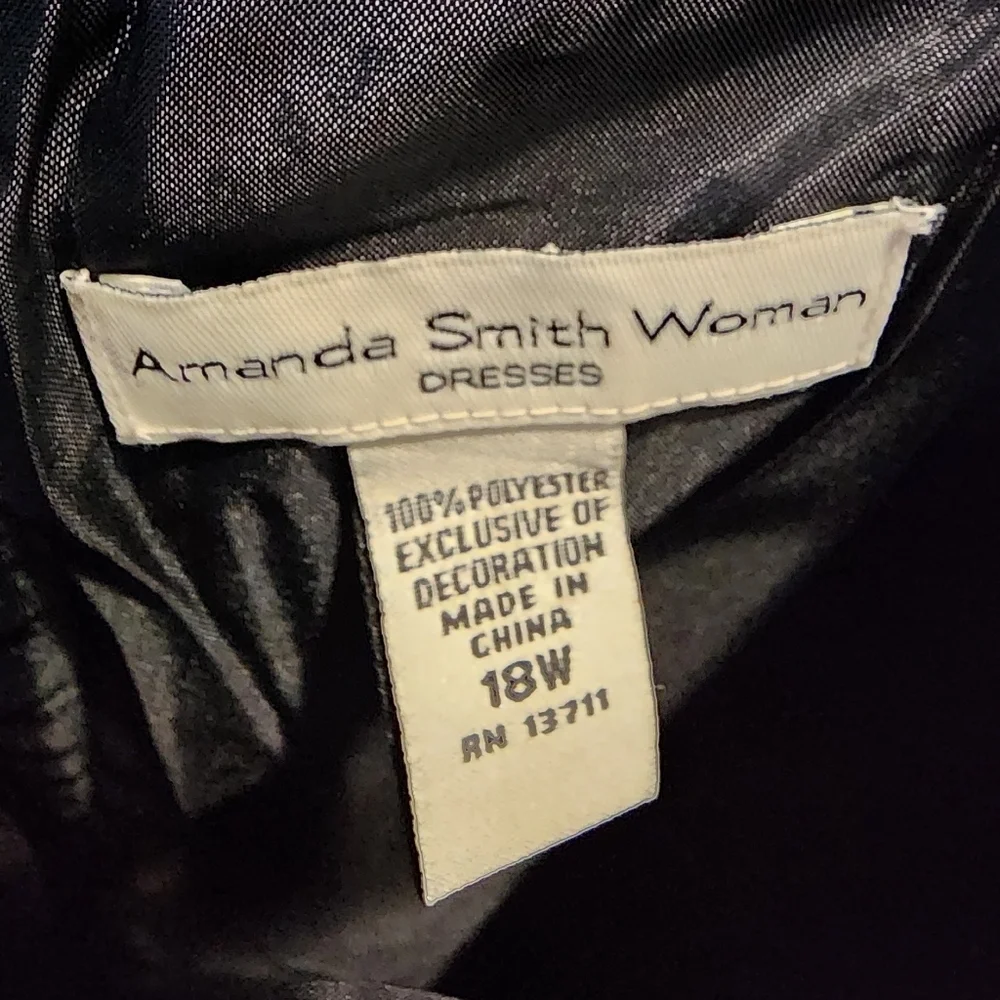 Amanda Smith Woman
DRESSES
100% POLYESTER
EXCLUSIVE OF
DECORATION
MADE IN
CHINA
18W
RN 13711